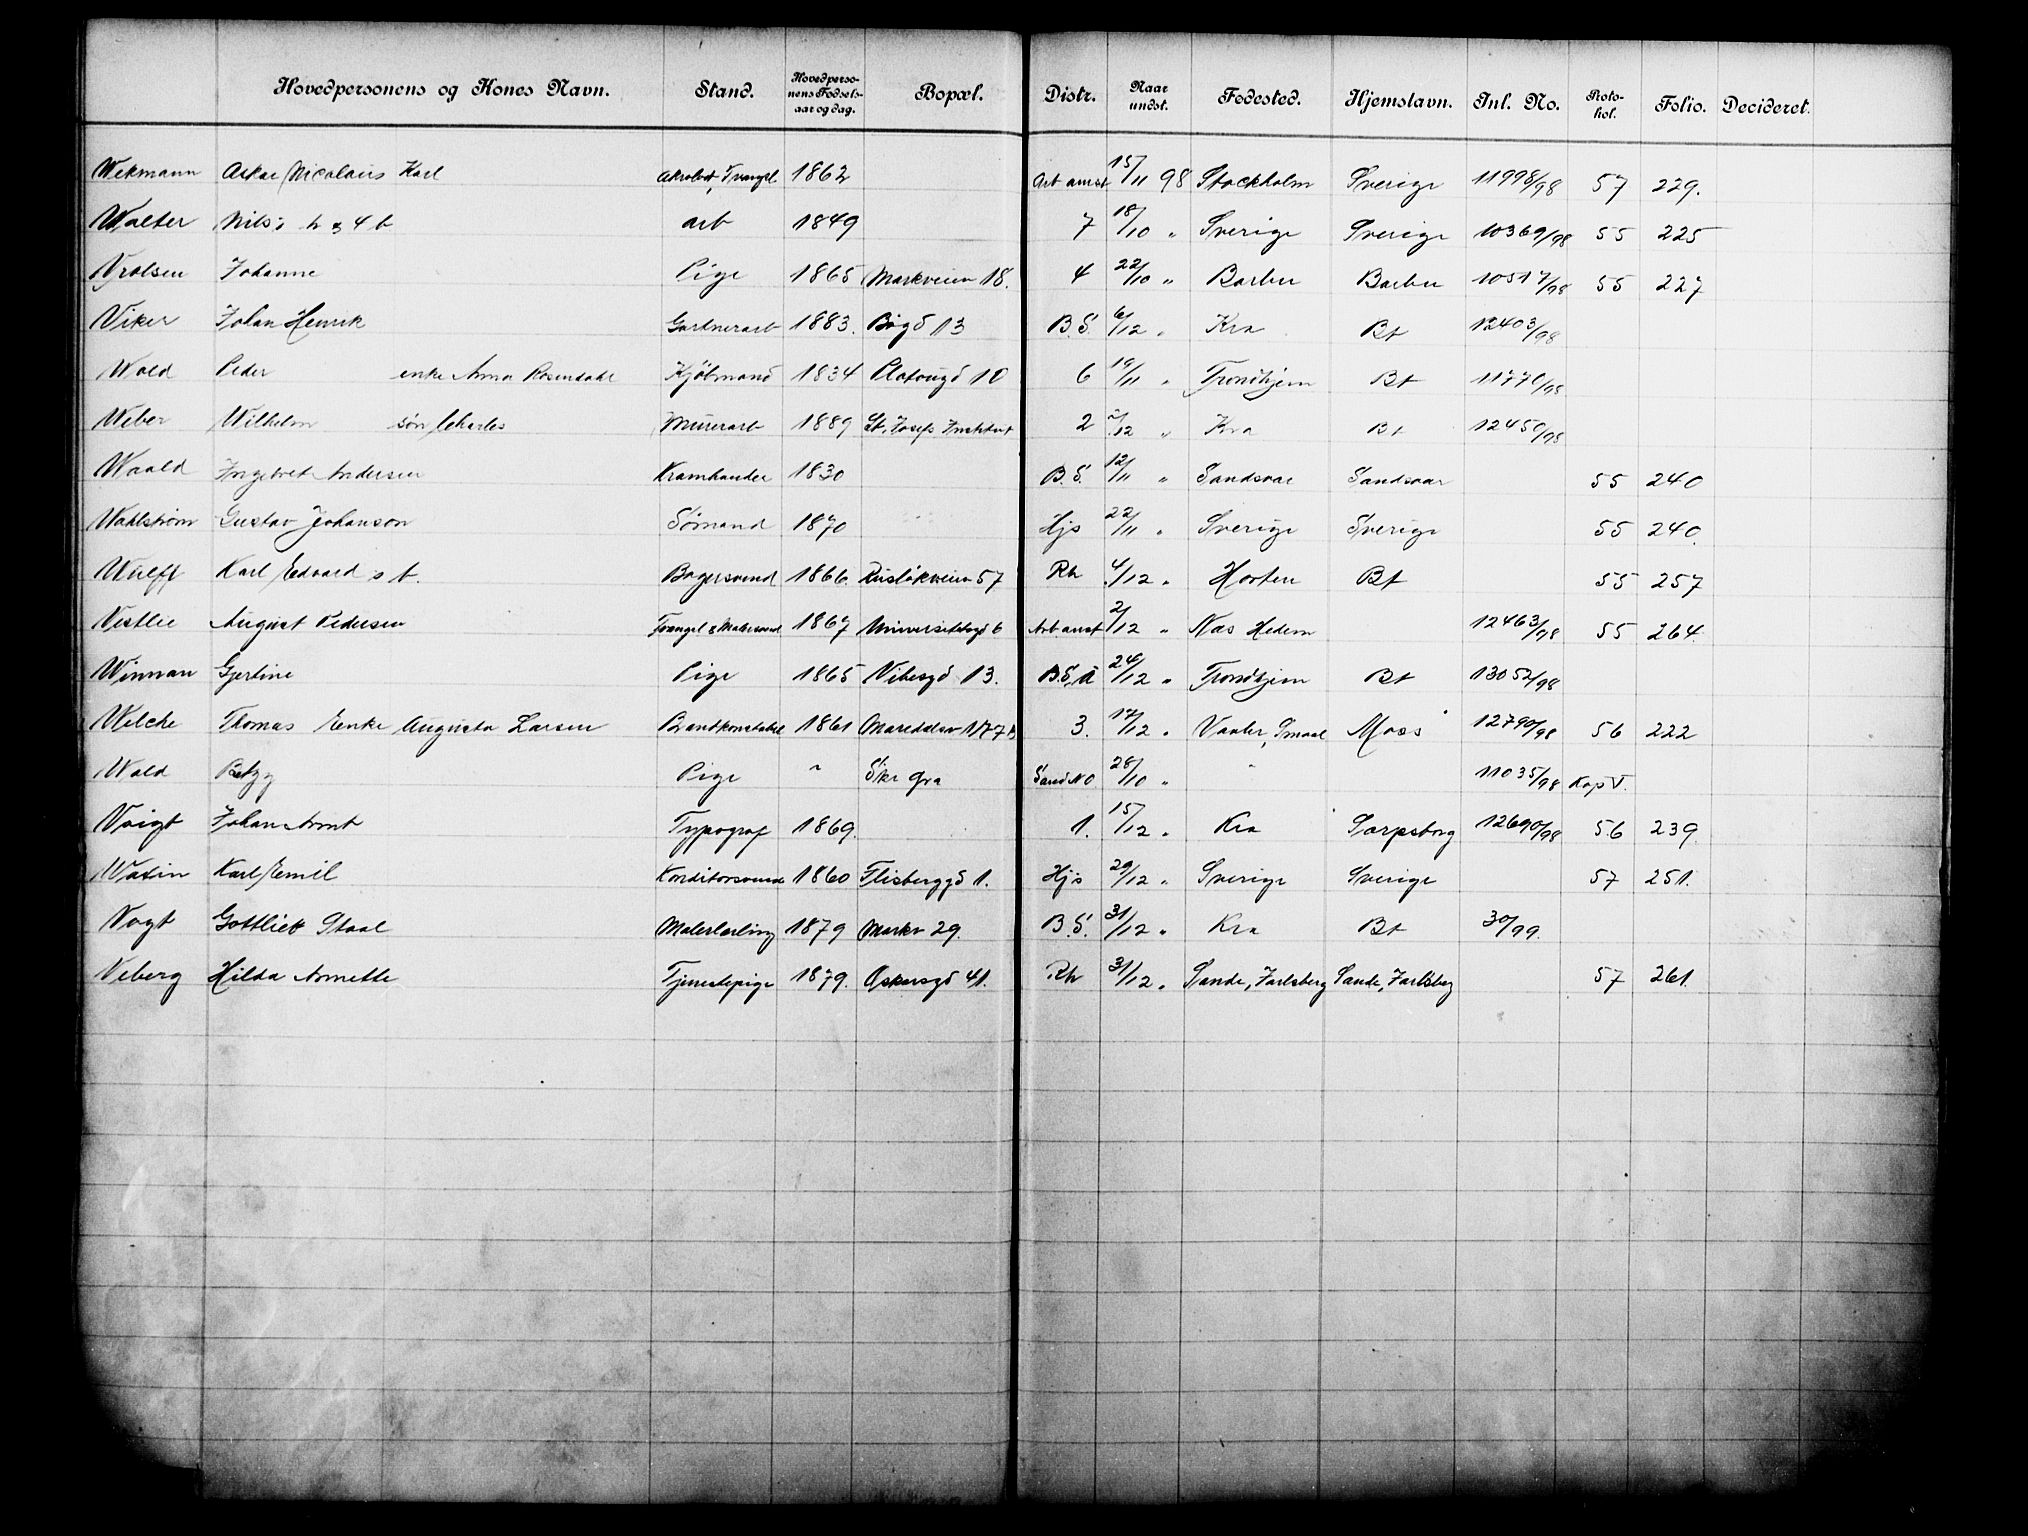 Hovedpersonens og Kones Navn. Stand. Hovedperso-nens Fødsels-aar og dag. Bopæl. Distr. Naar undst. Fødested. Hjemstavn. Inl. No. Proto-kol. Folio. Decideret.
Wekmann Askar Nicolaus Karl 1862 Arb anst 15/11 98 Stockholm Sverige 11998/98 57 229.
Walter Nils, h & 4 b arb 1849 7 18/10 " Sverige Sverige 10369/98 55 225
Vrolsen Johanne Pige 1865 Markveien 18. 4 22/10 " Barbu Barbu 10517/98 55 227
Viker Johan Henrik Gartnerarb 1883. Bygd 13 B.S. 6/12 " Kra Bt 12403/98
Wold Peder enke Anna Rosendahl Kjøbmand 1834 Platougd 10 6 19/11 " Trondhjem Bt 11770/98
Weber Wilhelm søn Charles Murerarb 1889 St. Josefs Institut 2 2/12 " Kra Bt 12450/98
Waald Ingebret Andersen Kramhandler 1830 B.S. 12/11 " Sandsvær Sandsvær 55 240
Wahlstrøm Gustav Johanson Sømand 1870 Hjs 22/11 " Sverige Sverige 55 240.
Wulff Karl Edvard s b. Bagersvend 1866. Ruseløkveien 57 Rh 4/12 " Horten Bt 55 257
Vestlie August Pedersen Tvangsl & Malersvend 1867 Universitetsgd 6 Arb anst 2/12 " Næs Hedem 12463/98 55 264.
Winman Gjertine Pige 1865 Vibesgd 13. B.S. A 24/12 " Trondhjem Bt 13052/98
Welche Thomas Enke Augusta Larsen Brandkonstabel 1861 Maridalsv 177 B 3. 17/12 " Vaaler, Smaal Moss 12790/98 56 222
Wold Betzy Pige " Skr gra Sand No. 28/10 " " 11035/98 Kap V.
Voigt Johan Arnt Typograf 1869. 1. 15/12 " Kra Sarpsborg 12690/98 56 239.
Waxin Karl Emil Konditorsvend 1860 Flisberggd 1. Hjs 29/12 " Sverige Sverige 57 251.
Vogt Gottlieb Staal Malerlærling 1879 Markv 29. B.S. 31/12 " Kra Bt 30/99.
Veberg Hilda Annette Tjenestepige 1879. Oskarsgd 41. Rh 31/12 " Sande, Jarlsberg Sande, Jarlsberg 57 261.